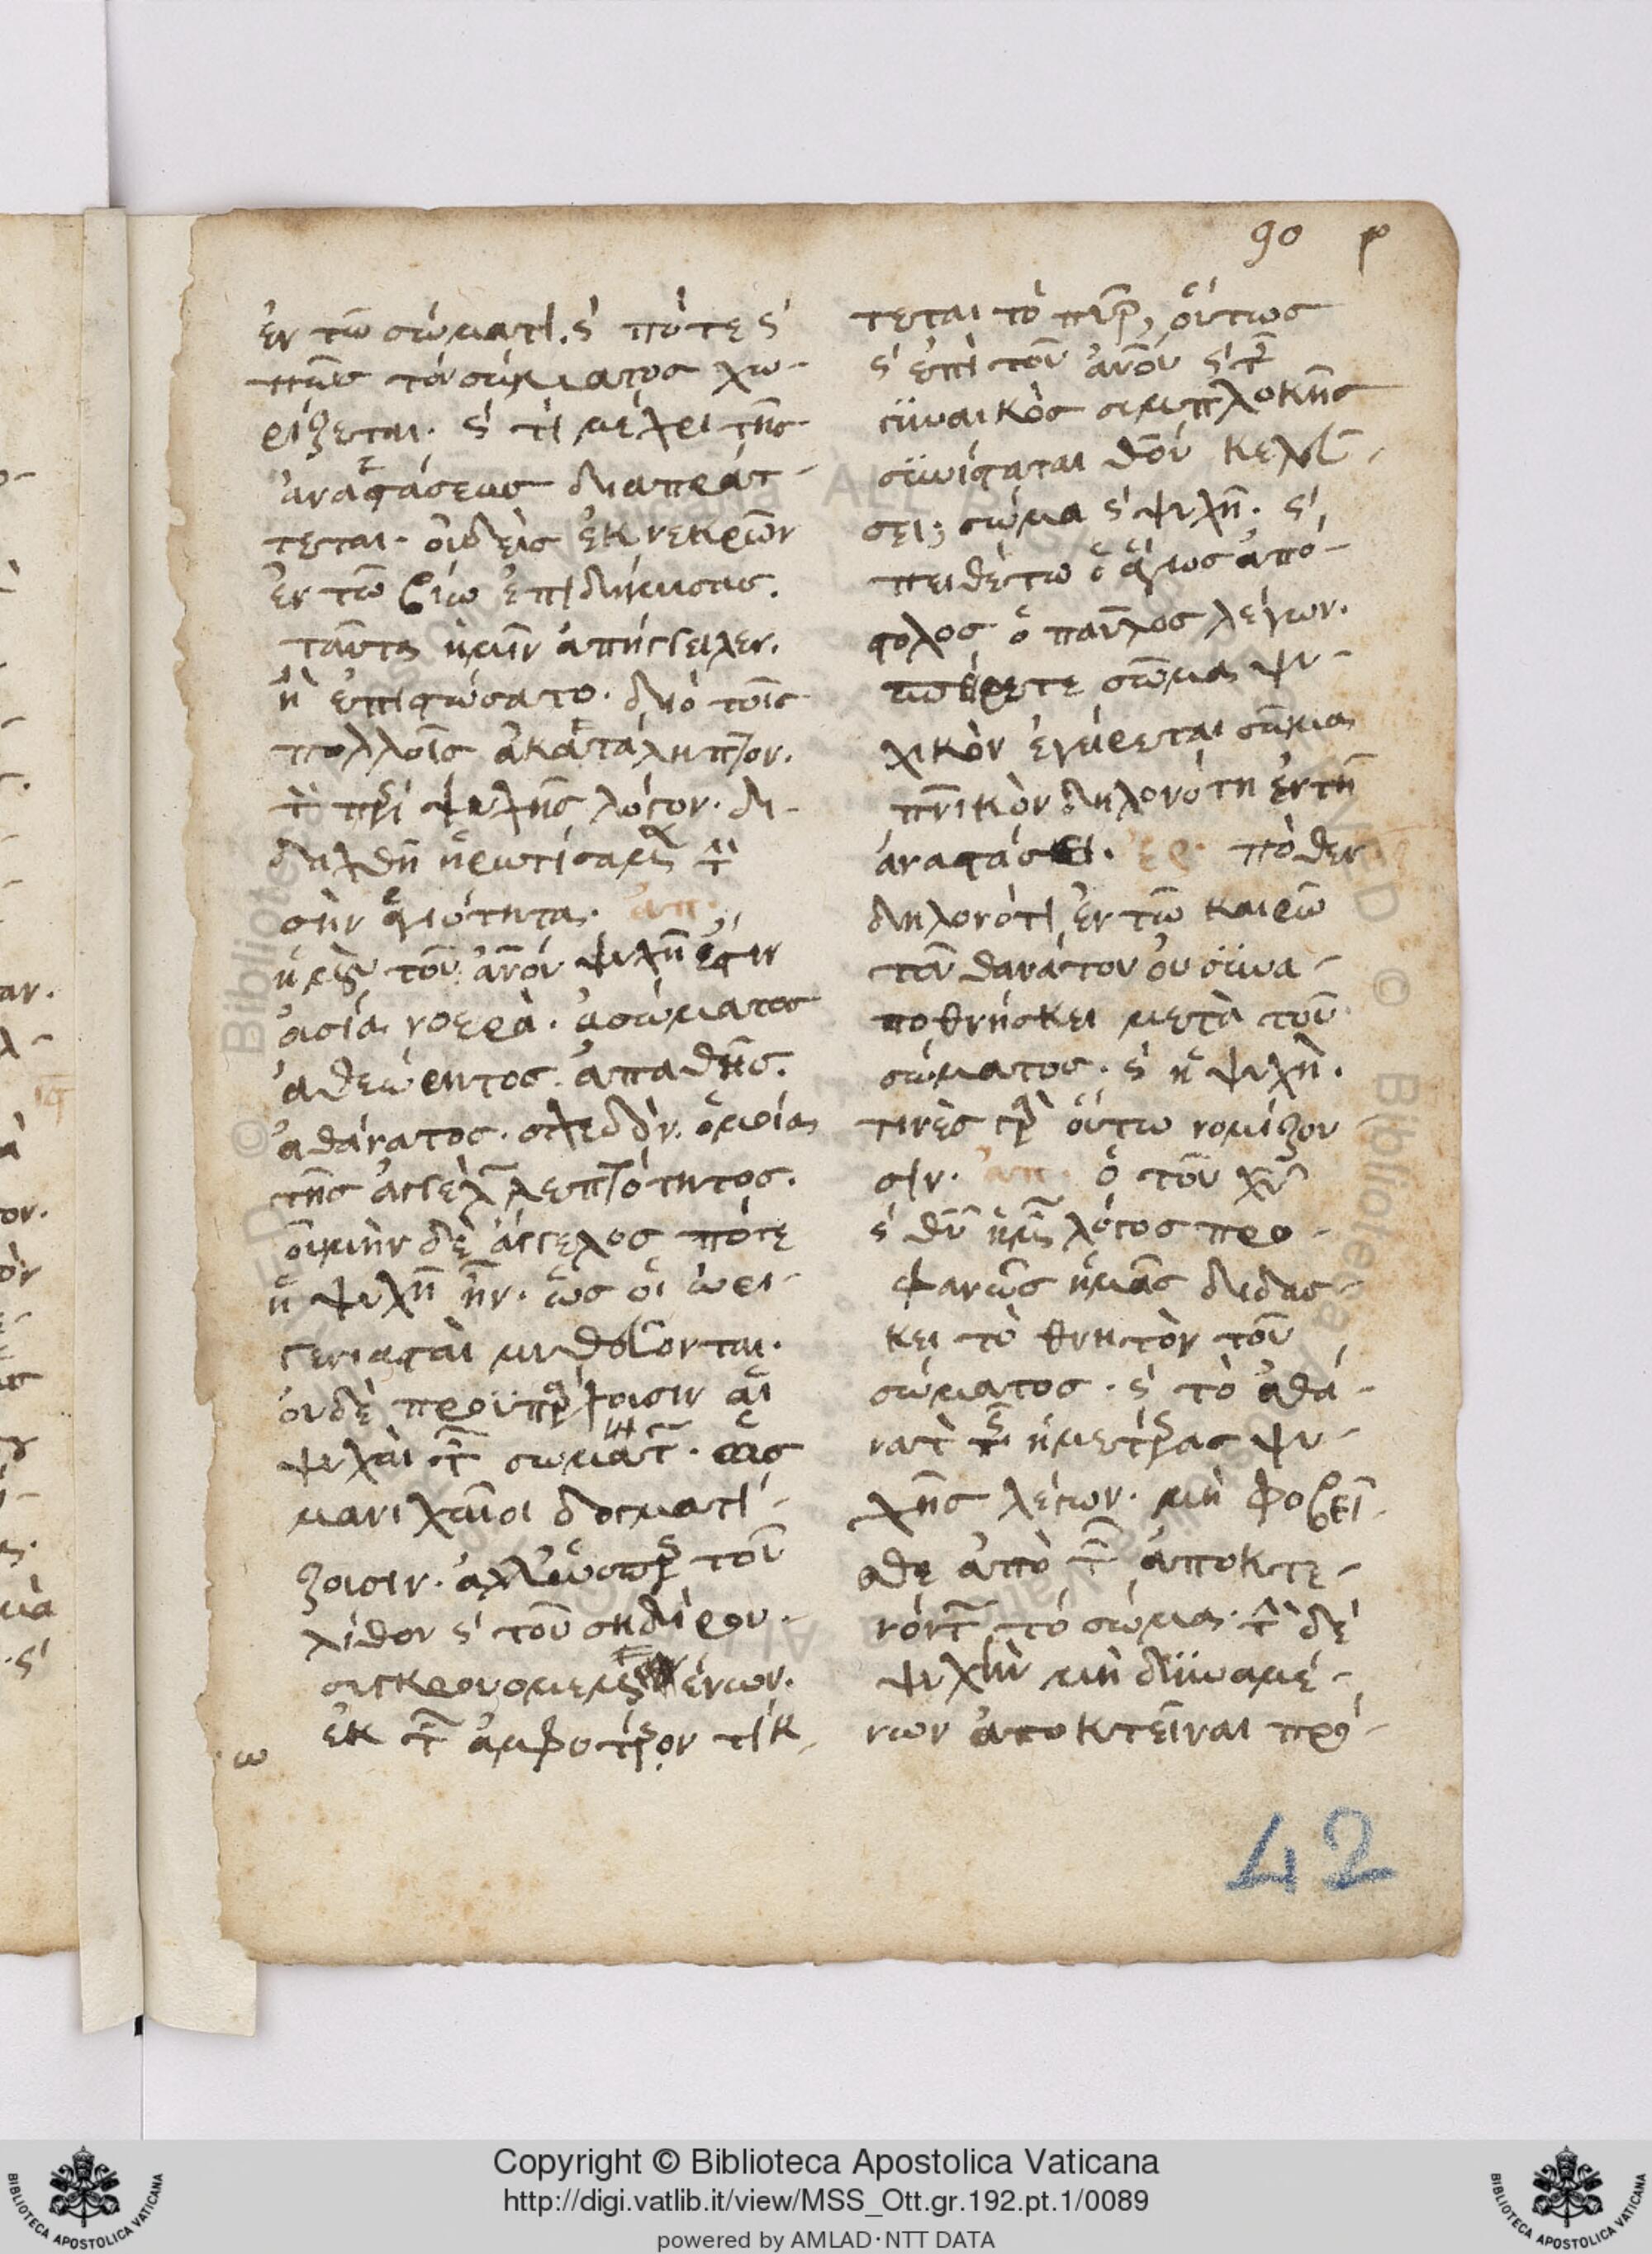 90 ρ
ἐν τῶ σώματι. ϛ πότε ϛ
πῶς τοῦ σώματος χω-
ρίζεται. ϛ τί μέχρι τῆς
ἀναστάσεως διαπράτ-
τεται. οὐδεὶς ἐκ νεκρῶν
ἐν τῶ βίω ἐπιδημήσας.
ταῦτα ἡμῖν ἀπήγγειλεν.
ἢ ἐπιστώσατο. διὸ τοῖς
πολλοῖς ἀκατάληπτον.
τὸν πρὶ ψυχῆς λόγον. δι-
δαχθῆ
σὴν ἁγιότητα. ἀπ.
τοῦ ἀνου ψυχή ἐστιν
οὐσία νοερά. ἀσώματος
ἀθεώρητος. ἀπαθής.
ἀθάνατος. σχεδὸν ὁμοία
τῆς ἀγγελ λεπτότητος.
οὐ μὴν δὲ ἄγγελος πότε
ἡ ψυχὴ ἦν. ὡς οἱ ὠρι-
γενιασταὶ μυθολογοῦνται.
οὐδὲ προϋπάρχουσιν αἱ
ψυχαὶ τῶν σωμάτων. ὡς
μανιχαῖοι δογματί-
ζουσιν. ἀλλ' ὥσπερ τοῦ
λίθου ϛ τοῦ σηδίρου
ἐκ τῶν ἀμφοτέρον τίκ-
ω
τεται τὸ πῦρ, οὕτως
ϛ ἐπὶ τοῦ ἀνου ϛ τῆς
γυναικὸς συμπλοκῆς
συνίσταται θου κελεύ-
σει; σῶμα ϛ ψυχή. ϛ
πειθέτω ὁ ἅγιος ἀπό-
στολος ὁ παῦλος λέγων.
σπείρετε σῶμα ψυ-
χικὸν ἐγείρεται σῶμα
πνικὸν δηλονότη ἐν τῆ
ἀναστάσει. ἐρ. πόθεν
δηλονότι ἐν τῶ καιρῶ
τοῦ θανάτου οὐ συνα-
ποθνήσκει μετὰ τοῦ
σώματος. ϛ ἡ ψυχή.
τινὲς γὰρ οὕτω νομίζου
σιν. ἀπ. ὁ τοῦ χυ
ϛ θυ ἡμῶν λόγος προ-
φανῶς ἡμᾶς διδάσ-
κει τὸ θνητὸν τοῦ
σώματος. ϛ τὸ ἀθά-
νατον τῆς ἡμετέρας ψυ-
χῆς λέγων. μὴ φοβεῖ-
σθε ἀπὸ τῶν ἀποκτε-
νόντων τὸ σῶμα. τὴν δὲ
ψυχὴν μὴ δυναμέ-
νων ἀποκτεῖναι πρό-
42
Copyright © Biblioteca Apostolica Vaticana
http://digi.vatlib.it/view/MSS_Ott.gr.192.pt.1/0089
powered by AMLAD·NTT DATA
BIBLIOTECA APOSTOLICA VATICANA
BIBLIOTECA APOSTOLICA VATICANA